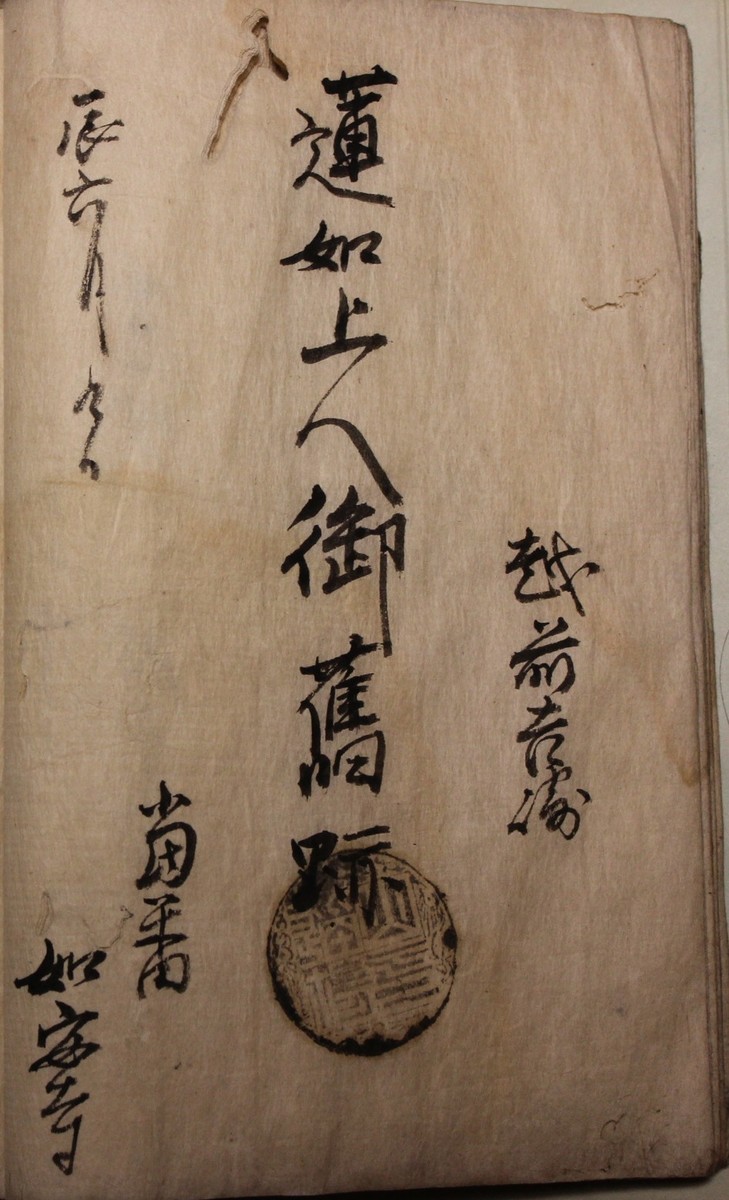 越前吉崎
蓮如上人御舊跡
當番
如安寺
辰六月九日